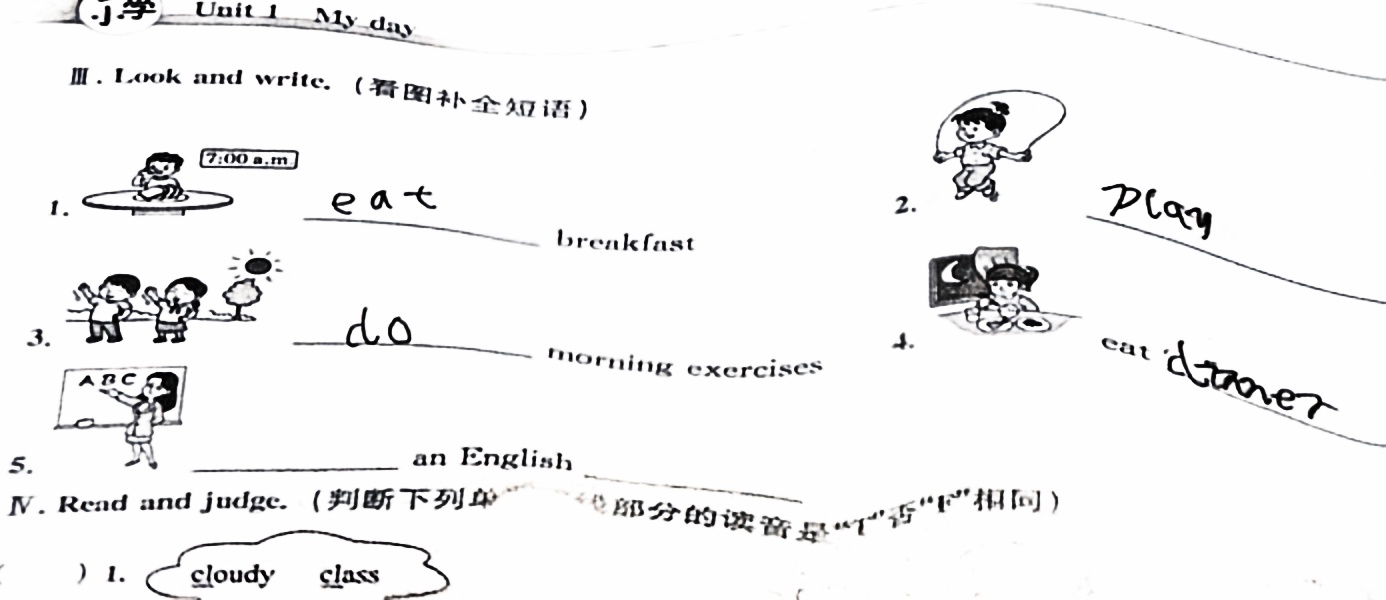 小学 Unit 1 My day
Ⅲ. Look and write. (看图补全短语)
7:00 a.m.
1. eat breakfast
2. play
3. do morning exercises
4. eat dinner
A B C
5. ______ an English ______
Ⅳ. Read and judge. (判断下列单 部分的读音是“T”否“F”相同)
( ) 1. cloudy class